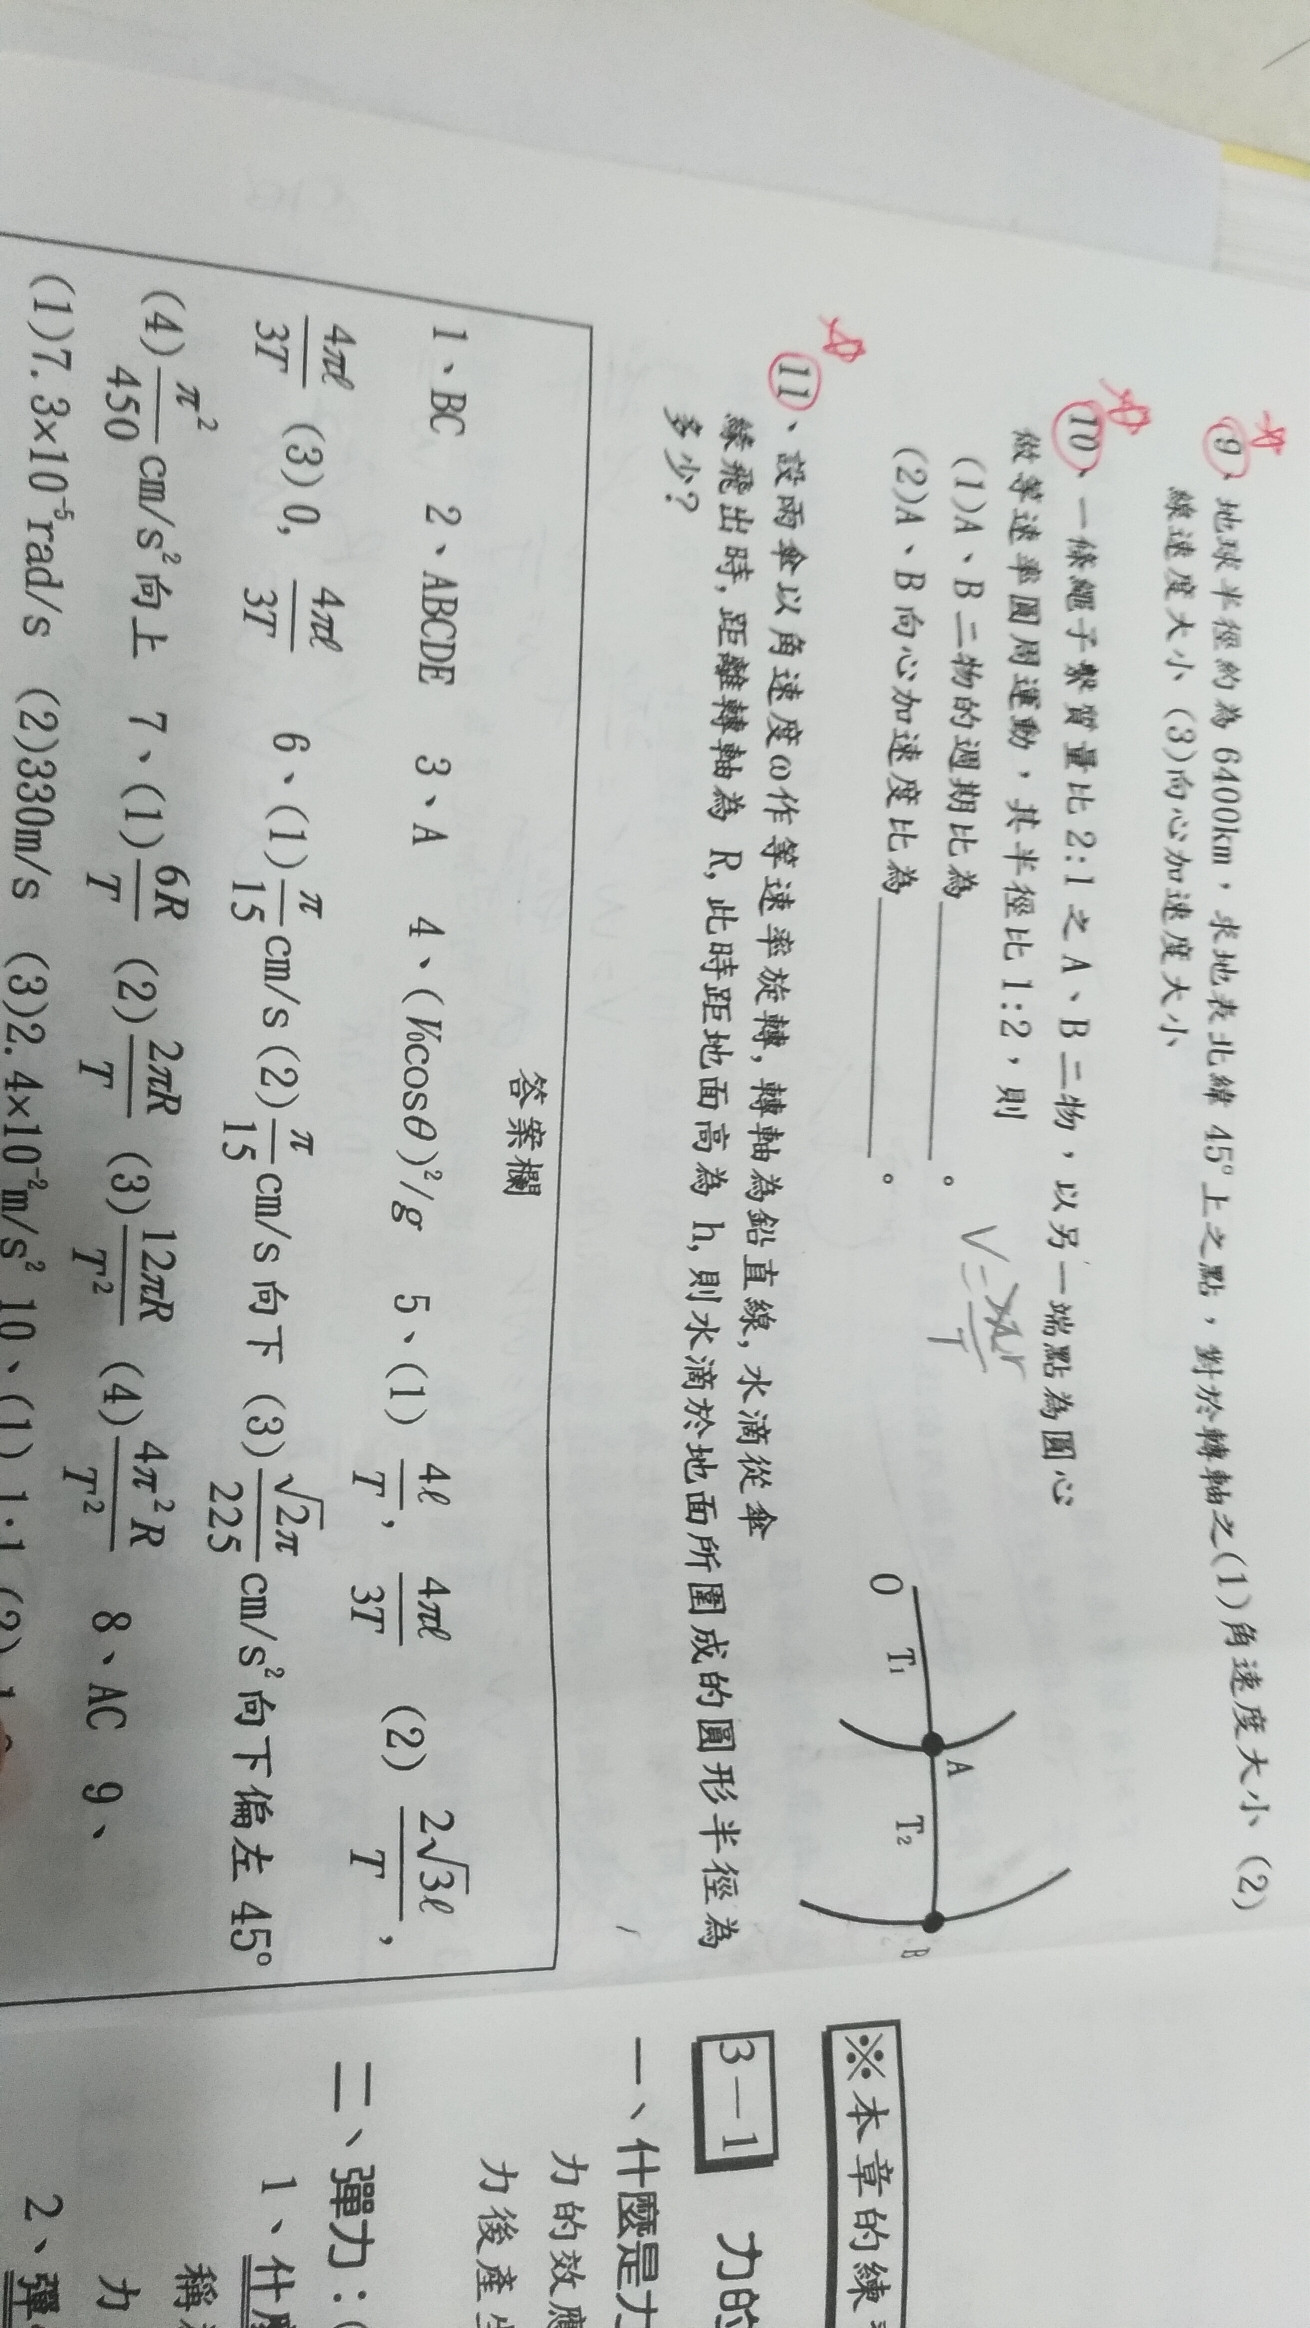 9、地球半徑約為 6400km，求地表北緯 45°上之點，對於轉軸之(1)角速度大小 (2)
線速度大小 (3)向心加速度大小
10、一條繩子繫質量比 2:1 之 A、B 二物，以另一端點為圓心
做等速率圓周運動，其半徑比 1:2，則
(1)A、B 二物的週期比為__________。
(2)A、B 向心加速度比為__________。
V=2πr/T
O T₁ A T₂ B
11、設雨傘以角速度ω作等速率旋轉, 轉軸為鉛直線, 水滴從傘
緣飛出時, 距離轉軸為 R, 此時距地面高為 h, 則水滴於地面所圍成的圓形半徑為
多少?
答案欄
1、BC 2、ABCDE 3、A 4、(V₀cosθ)²/g 5、(1) 4ℓ/T, 4πℓ/3T (2) 2√3ℓ/T,
4πℓ/3T (3)0, 4πℓ/3T 6、(1)π/15 cm/s (2)π/15 cm/s 向下 (3)√2π/225 cm/s²向下偏左 45°
(4)π²/450 cm/s²向上 7、(1)6R/T (2)2πR/T (3)12πR/T² (4)4π²R/T² 8、AC 9、
(1)7.3×10⁻⁵rad/s (2)330m/s (3)2.4×10⁻²m/s² 10、(1) 1:1 (2)
※本章的練
3－1 力的
一、什麼是力
力的效應
力後產生
二、彈力：(
1、什麼
稱
力
2、彈